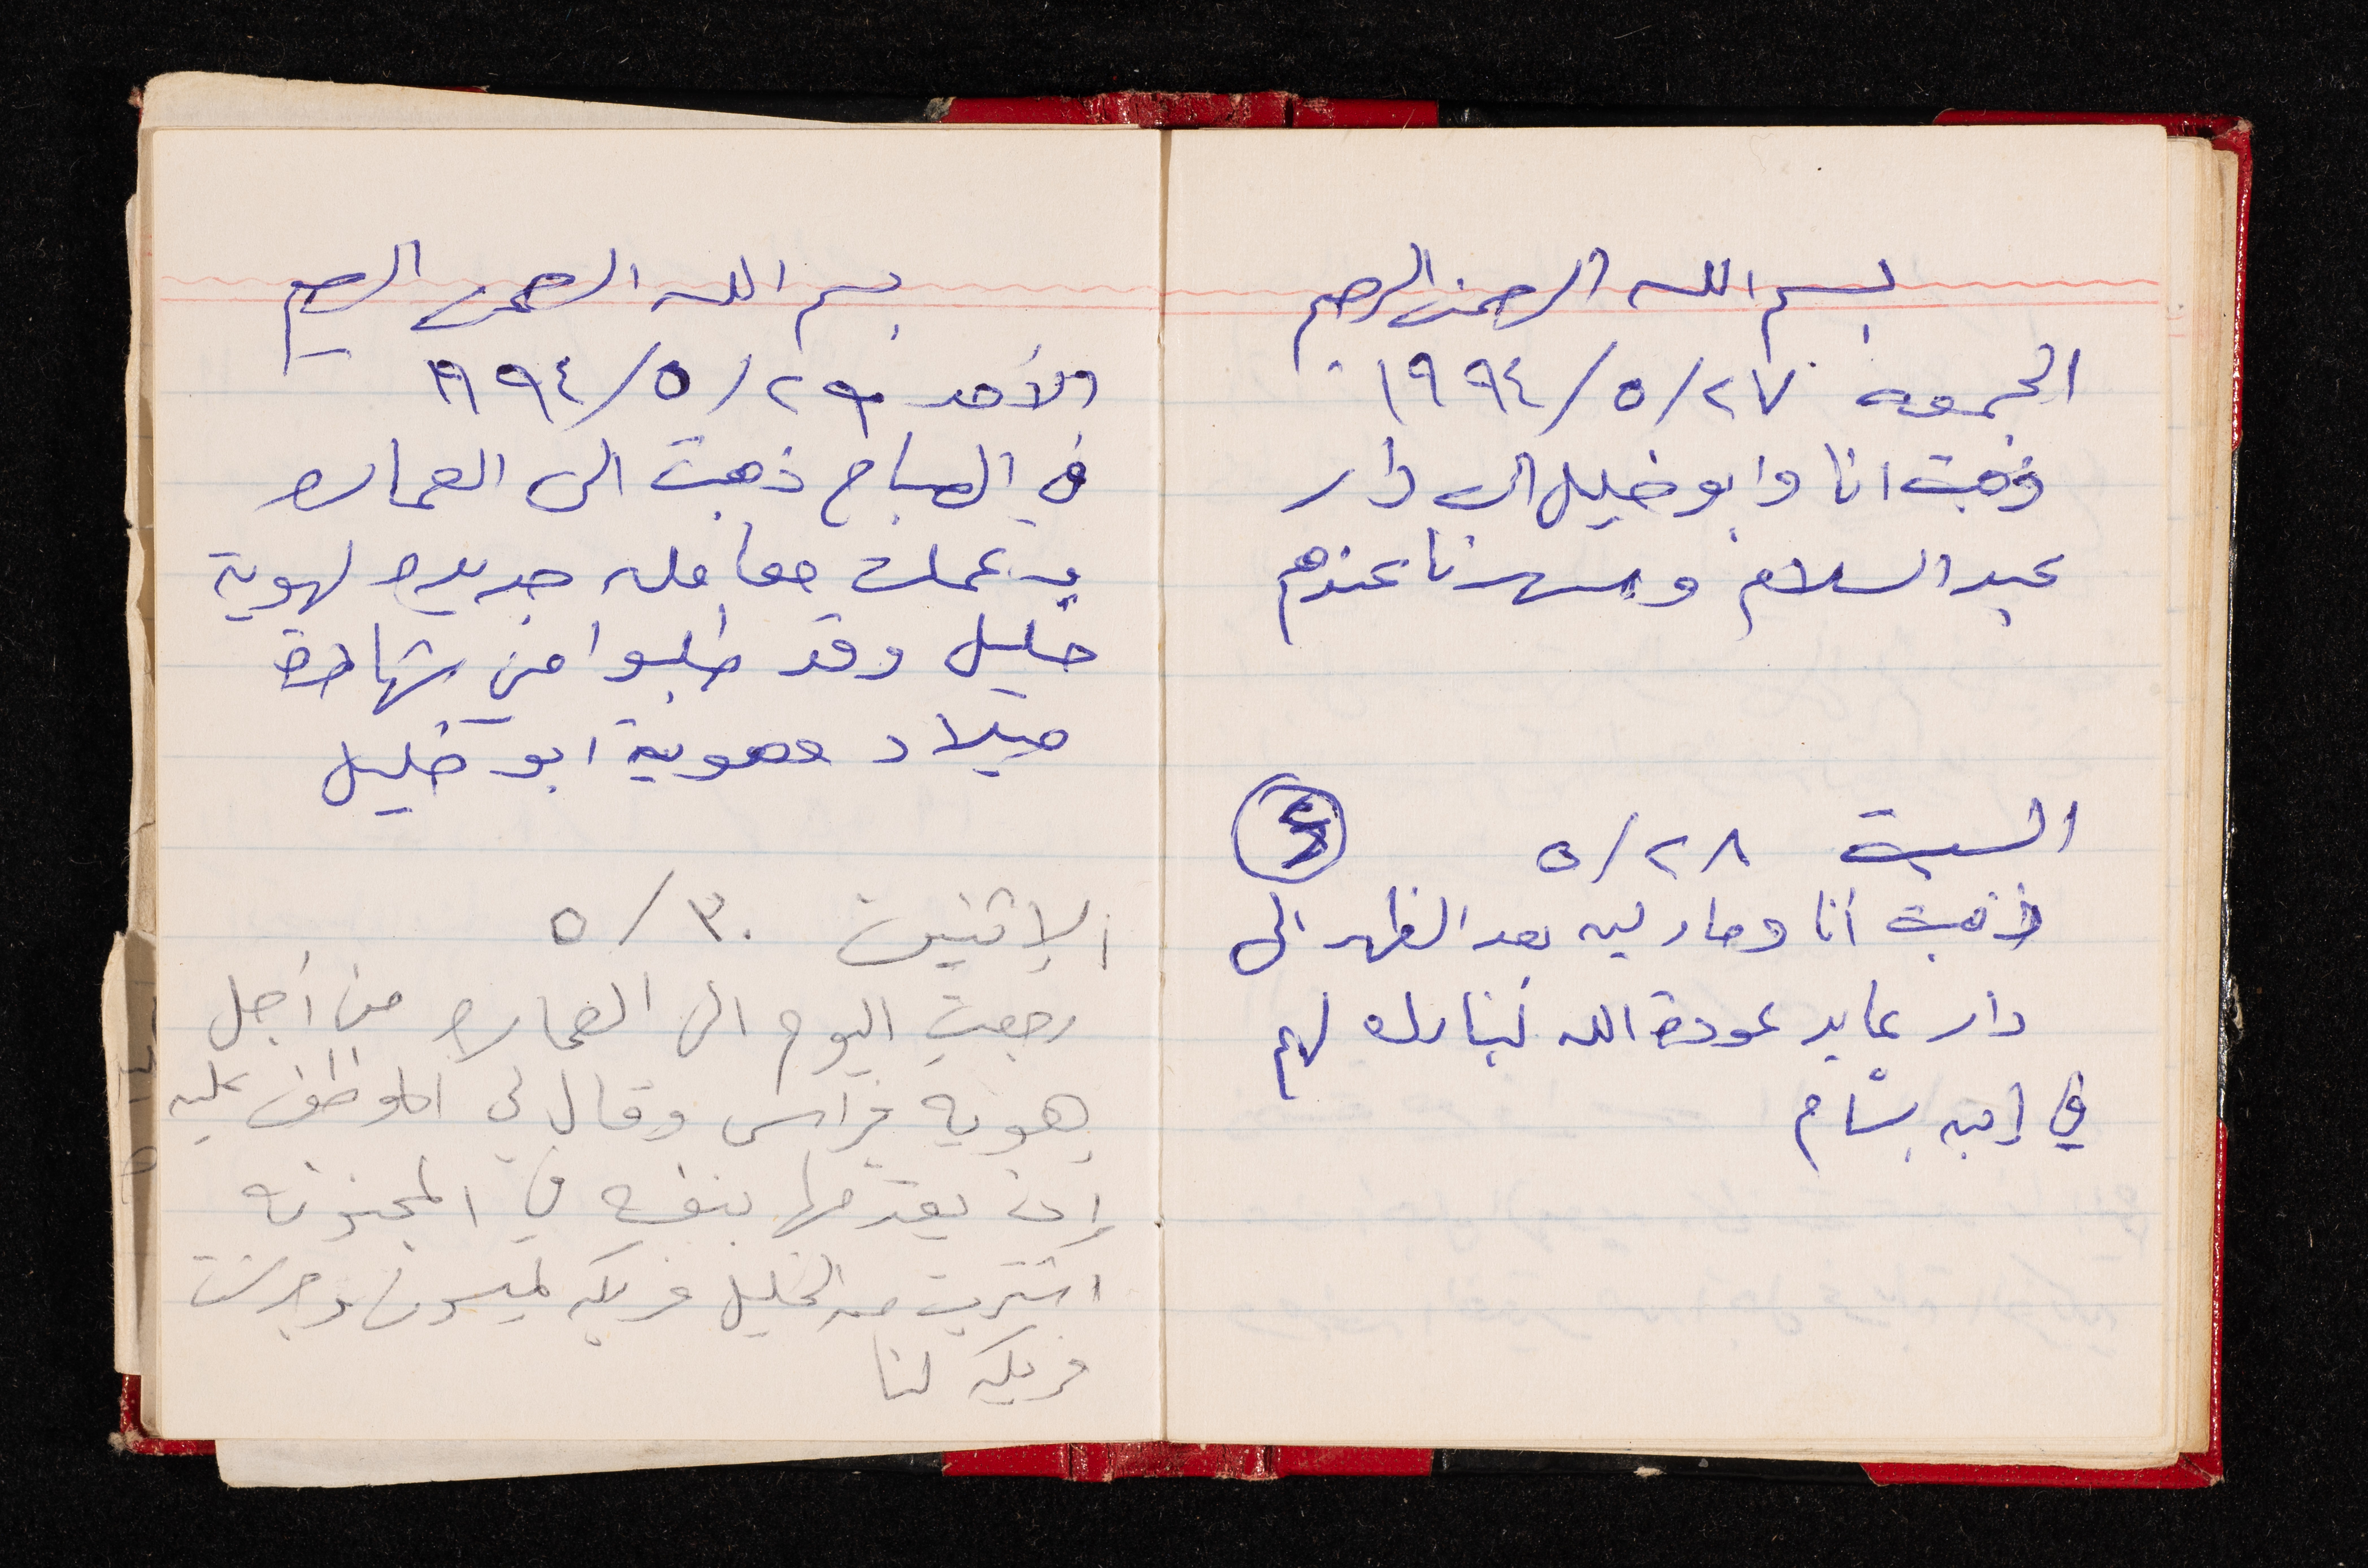 بسم الله الرحمن الرحيم
الجمعه ٢٧/٥/١٩٩٤
ذهبت انا وابو خليل الى دار
عبد السلام وسهرنا عندهم
السبت ٢٨/٥ ٤
ذهبت أنا ومارليه بعد الظهر الى
دار عايد عودة الله لنبارك لهم
في ابنه بسّام
بسم الله الرحمن الرحيم
الأحد ٢٩/٥/١٩٩٤
في الصباح ذهبت الى العماره
وعملت معامله جديده لهوية
خليل وقد طلبوا مني شهادة
ميلاد وهوية ابو خليل
الإثنين ٣٠/٥
رجعت اليوم الى العماره من أجل
هويه فراس وقال لي الموظف عليه
إن يقدمها بنفسه في المجنونه
اشتريت من الخليل فريكه لميسون وجرشت
فريكه لنا